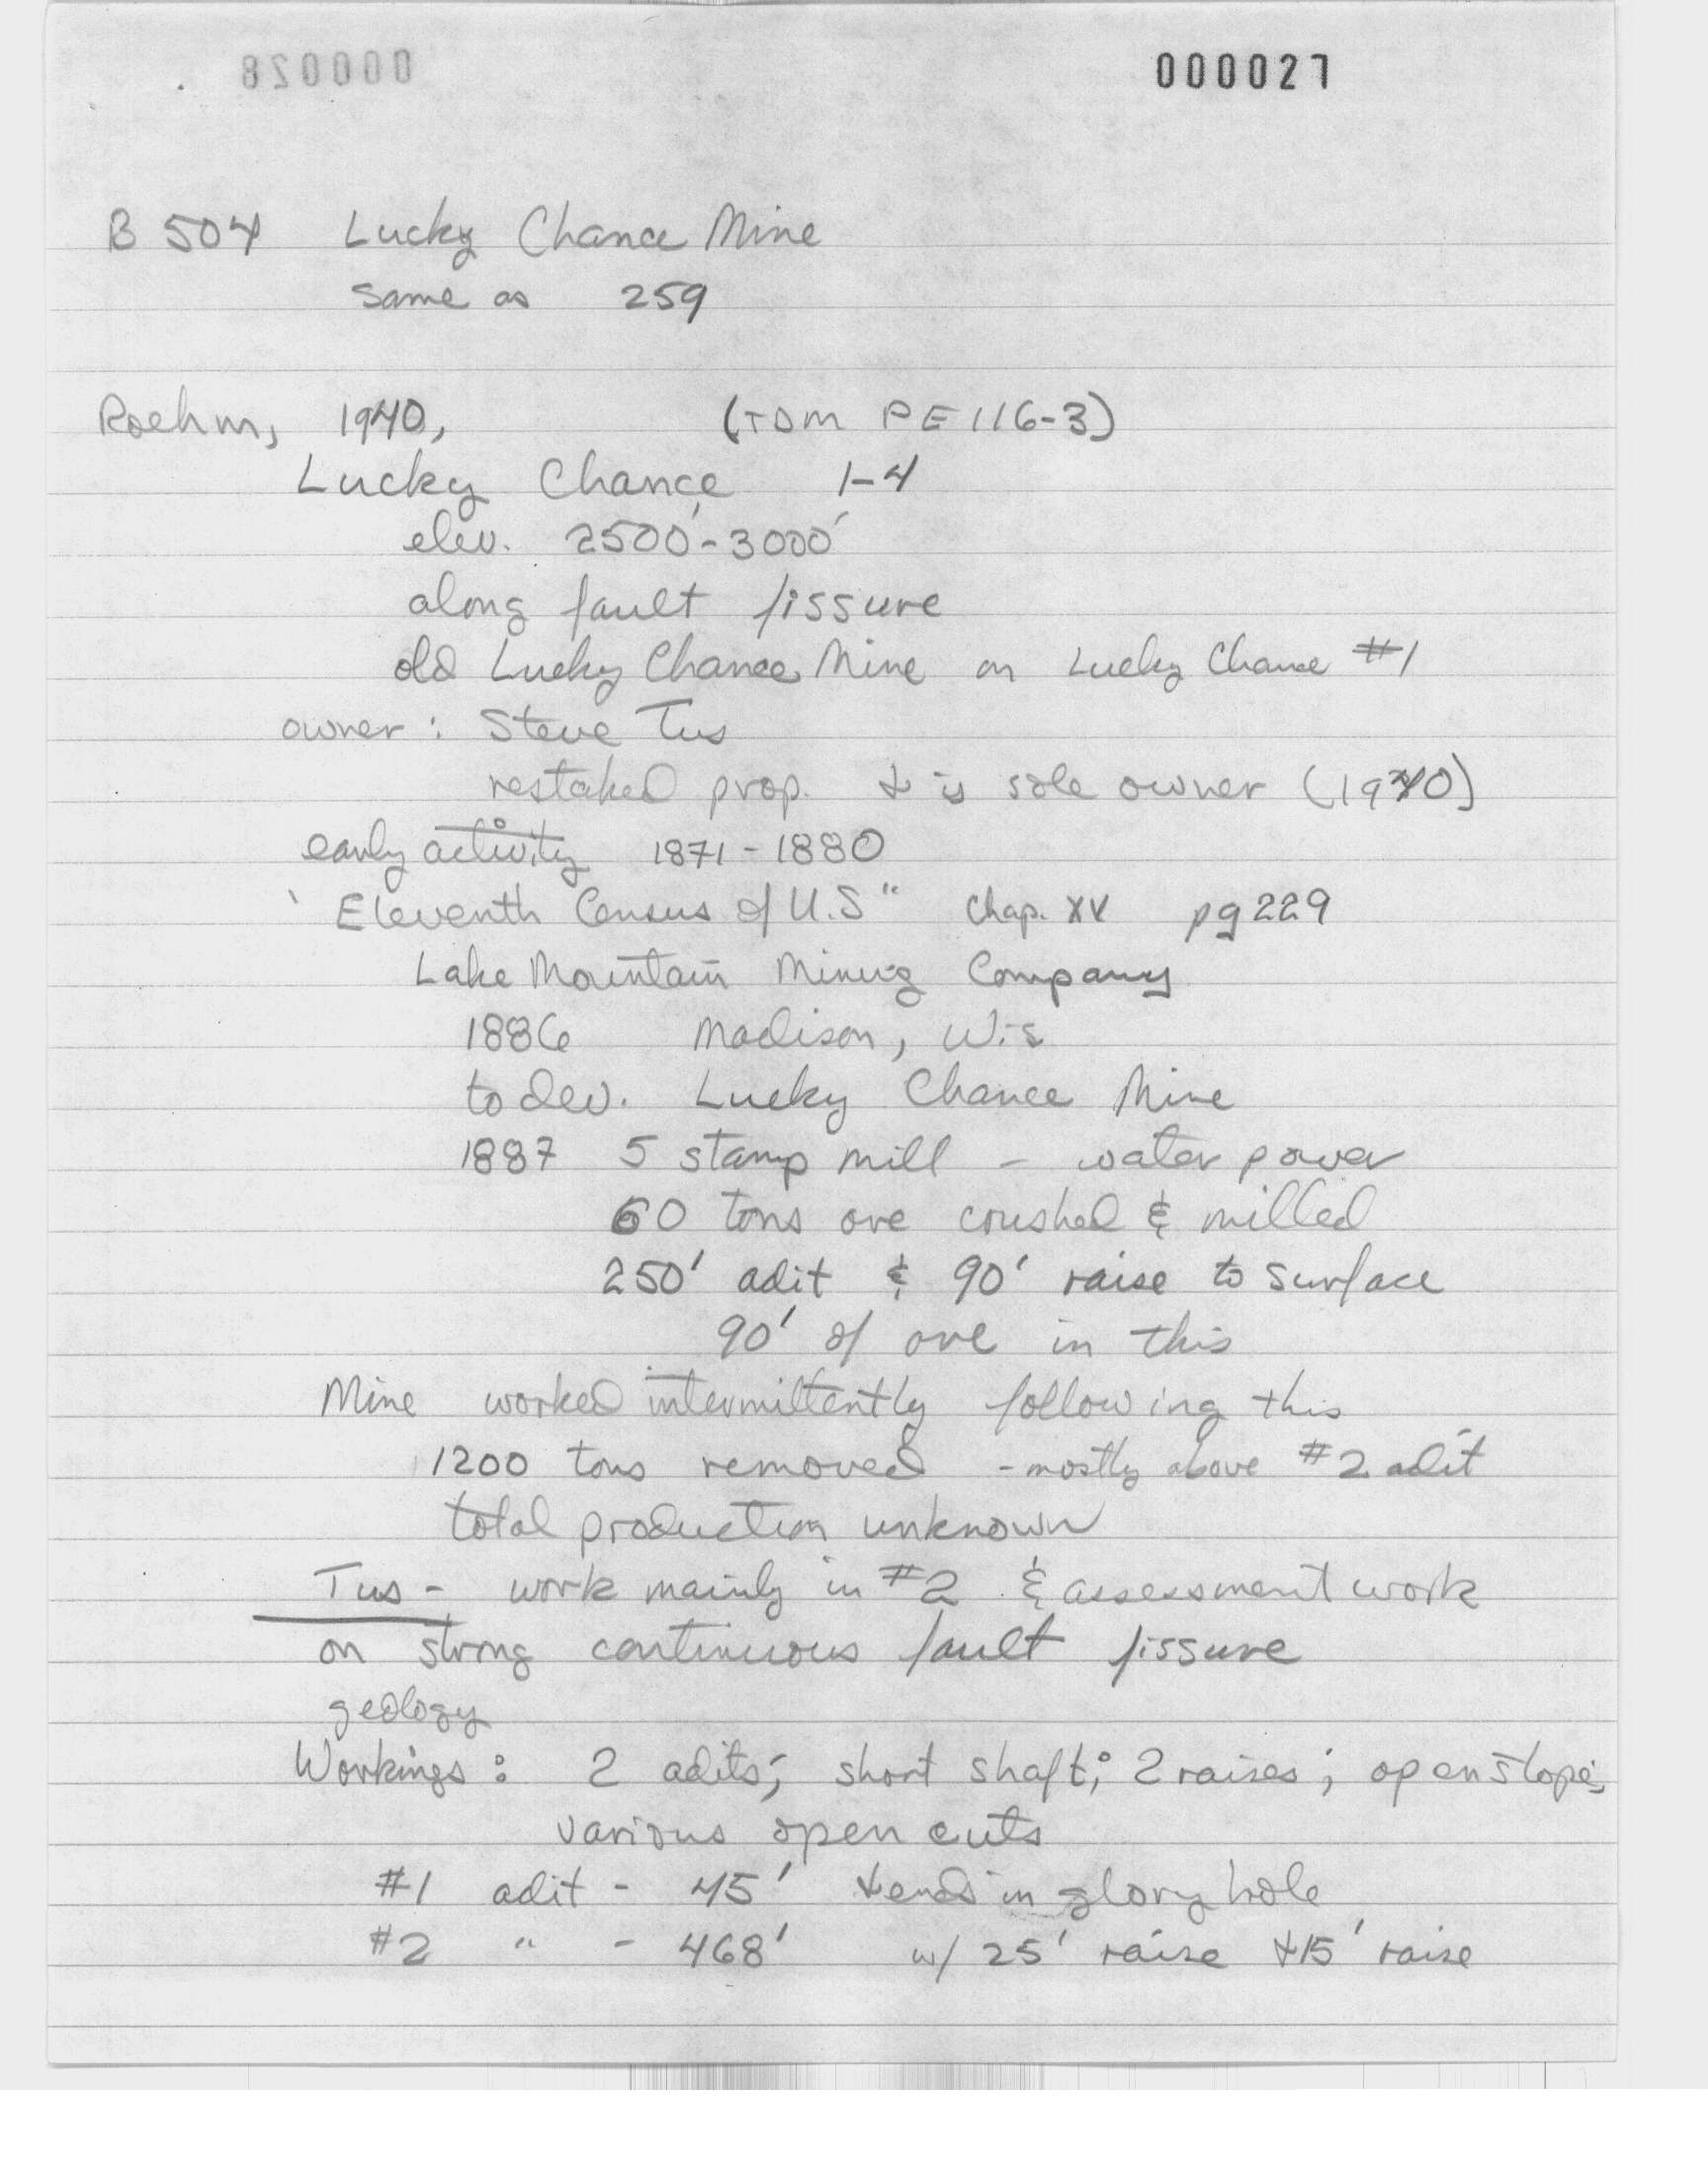 000028 000027
B 504 Lucky Chance Mine
Same as 259
Roehm, 1940, (TDM PE 116-3)
Lucky Chance 1-4
elev. 2500'-3000'
along fault fissure
old Lucky Chance Mine on Lucky Chance #1
owner: Steve Tus
restaked prop. & is sole owner (1940)
early activity 1871-1880
"Eleventh Census of U.S" Chap. XV pg 229
Lake Mountain Mining Company
1886 Madison, Wis
to dev. Lucky Chance Mine
1887 5 stamp mill - water power
60 tons ore crushed & milled
250' adit & 90' raise to surface
90' of ore in this
Mine worked intermittently following this
1200 tons removed - mostly above #2 adit
total production unknown
Tus - work mainly in #2 & assessment work
on strong continuous fault fissure
geology
Workings: 2 adits; short shaft; 2 raises; open stope;
various open cuts
#1 adit - 45' & ends in glory hole
#2 " - 468' w/ 25' raise & 15' raise